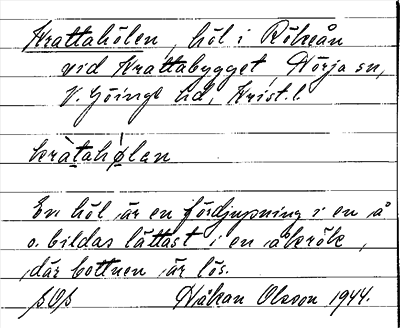 Krattahölen, höl i Rökeån
vid Krattabygget, Nörja sn,
V. Göinge hd, Krist. l.
kràtahø̀lan
En höl är en fördjupning i en å
o. bildas lättast i en åkrök,
där bottnen är lös.
Håkan Olsson 1944.